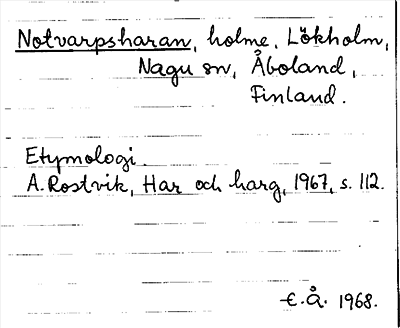 Notvarpsharan, holme, Lökholm,
Nagu sn, Åboland,
Finland.
Etymologi.
A. Rostvik, Har och harg, 1967, s. 112.
E.Å. 1968.